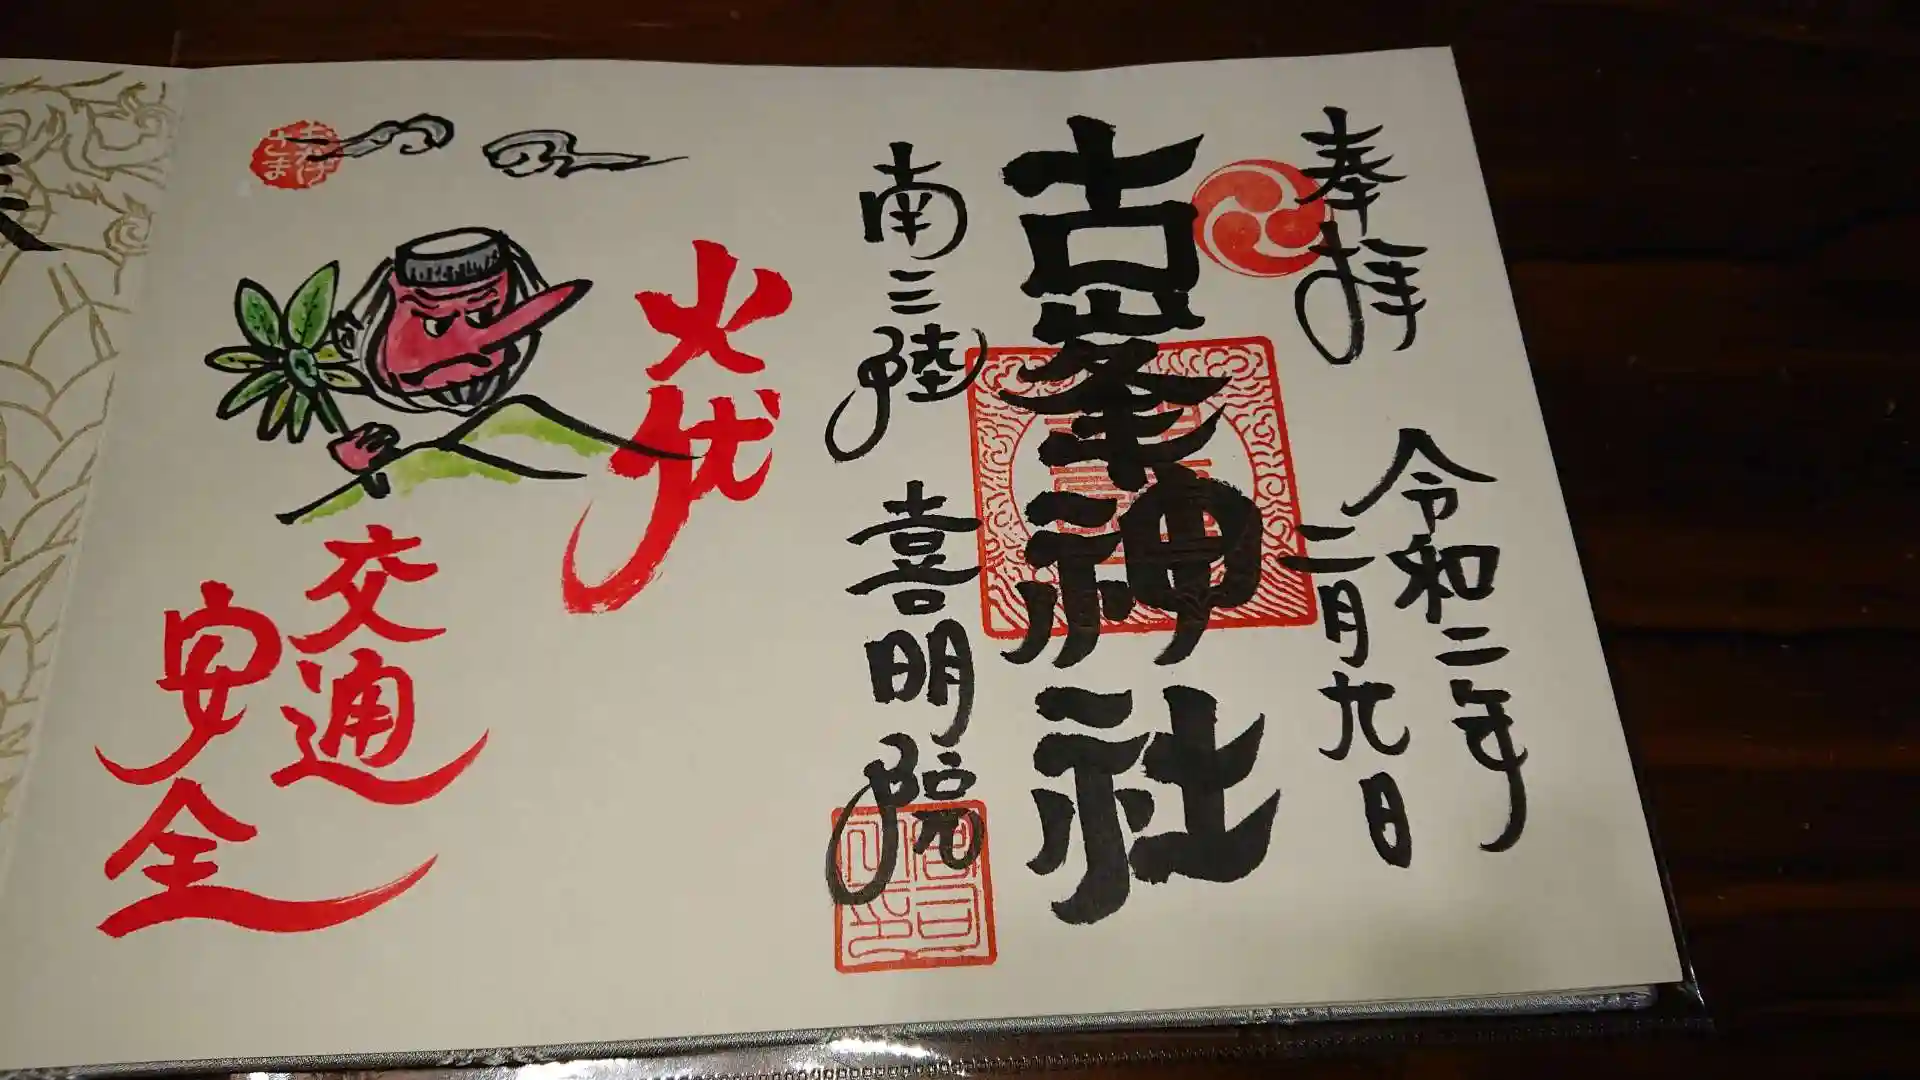 奉拝
令和二年
二月九日
古峯神社
南三陸 喜明院
火伏
交通
安全